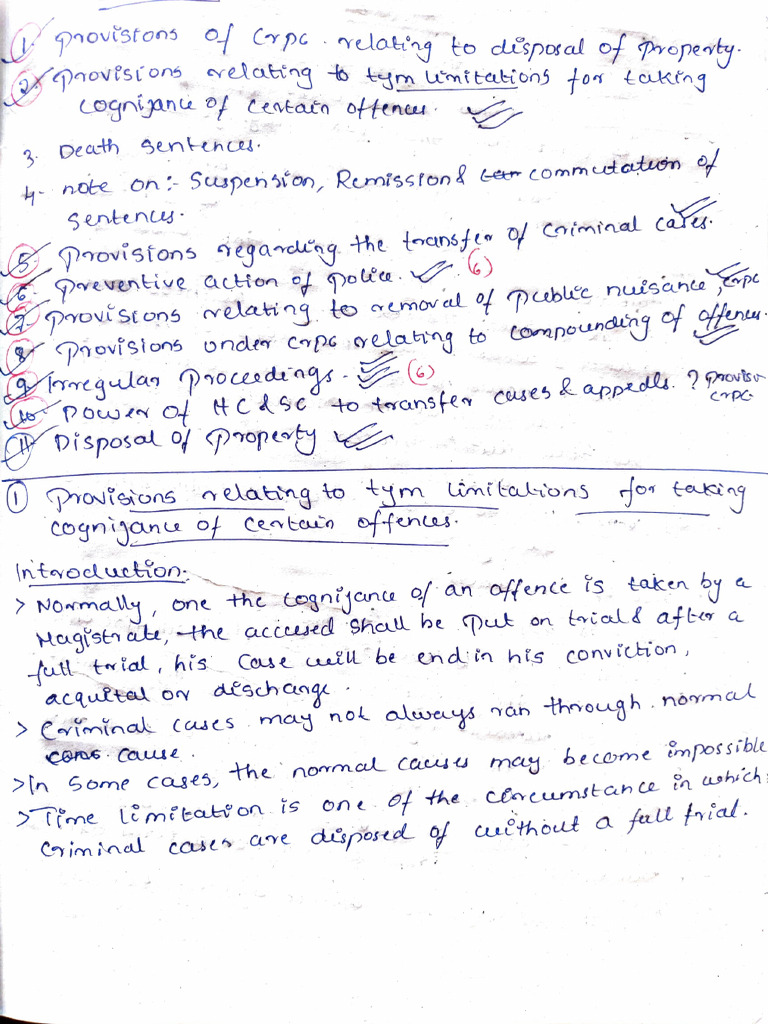 1. Provisions of Crpc. relating to disposal of Property.
2. Provisions relating to tym limitations for taking
cognizance of certain offences.
3. Death sentences.
4- note on:- Suspension, Remission & commutation of
sentences.
5. Provisions regarding the transfer of criminal cases.
6. Preventive action of Police. (6)
7. Provisions relating to removal of Public nuisance, Crpc
8. Provisions under crpc relating to compounding of offences.
9. Irregular Proceedings. (6)
10. Power of HC & SC to transfer cases & appeals. ? Provisi
crpc.
11 Disposal of Property
① Provisions relating to tym limitations for taking
cognizance of certain offences.
Introduction:
> Normally, one the cognizance of an offence is taken by a
Magistrate, the accused shall be put on trial & after a
full trial, his case will be end in his conviction,
acquital or discharge.
> Criminal cases may not always ran through normal
cause.
> In some cases, the normal causes may become impossible
> Time limitation is one of the circumstance in which
criminal cases are disposed of without a full trial.